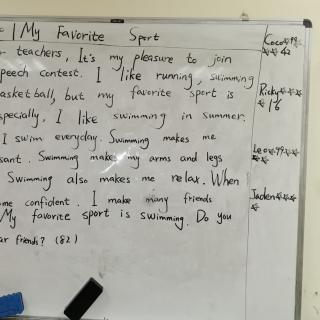 | My Favorite Sport
teachers, It's my pleasure to join
peech contest. I like running, swimming
asketball, but my favorite sport is
specially, I like swimming in summer.
I swim everyday. Swimming makes me
sant. Swimming makes my arms and legs
Swimming also makes me relax. When
me confident. I make many friends
My favorite sport is swimming. Do you
ar friends? (82)
Coco
42
Ricky
16
Leo
Jaden